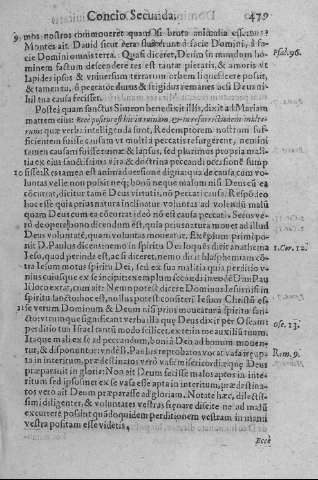 Concio Secunda. 479
mos nostros commoueret quasi bruto animalia essemus?
Montes ait. Dauid sicut cera fluxerunt à facie Domini, à fa-
cie Domini omnis terra. Quasi diceret, Deum in mundum ho- Psal. 96.
minem factum descendere res est tantæ pietatis, & amoris vt
lapides ipsos & vniuersum terrarum orbem liquefacere possit,
& tamen tu, ô peccator durus & frigidus remanes ac si Deus ni-
hil tua causa fecisset.
Posteà quam sanctus Simeon benedixit illis, dixit ad Mariam
mattem eius: Ecce positus est hic in ruinam, & in resurrectionem multo-
rum: quæ verba intelligenda sunt, Redemptorem nostrum suf-
ficientem fuisse causam vt multi à peccatis resurgerent, nemini
tamen causam fuisse ruinæ & lapsus, sed plurimos propria mali-
tia ex eius sanctissima vita & doctrina peccandi occasionem sump-
10 sisse. Res tamen est animaduersione digna quia de causa cum vo-
luntas velle non possit neq; bonum neque malum nisi Deus cum ea
cõcurrat, dicitur tamẽ Deus virtutis, nõ peccati causa. Respõdeo
hoc esse quia prius natura inclinatur voluntas ad volendum malũ
quam Deus cum ea cõcurrat ideò nõ est causa peccati. Secus ve-
rò de opere bono dicendum est, quia prius natura mouet ad illud
Deus voluntatẽ, quam voluntas moueatur. Exẽplum primi po-
nit D. Paulus dicens: nemo in spiritu Dei loquẽs dicit anathema 1. Cor. 12.
Iesu, quod perinde est, ac si diceret, nemo dicit blasphemiam cõ-
tra Iesum motus spiritu Dei, sed ex sua malitia
illo cor exæ, cum ait: Nemo potest dicere Dominus Iesus nisi in
spiritu sancto: hoc est, nullus potest confiteri Iesum Christũ es-
se verum Dominum & Deum nisi prius moueatur à spiritu san-
cto: vtrumque significant verba illa quę Deus dixit per Oseam:
perditio tua Israel tantũ modo scilicet ex te: in me auxiliũ tuum. Ose. 13.
Itaque mali ex se ad peccandum, boni à Deo ad bonum mouen-
tur, & disponuntur: vnde D. Paulus reprobatos vocat vasa iræ ap- Rom. 9.
ta in interitum, prædestinatos verò vasa misericordiæ, quę Deus
præparauit in gloriam: Non ait Deum fecisse malos aptos in inte-
ritum sed ipsos met ex se vasa esse apta in interitum, prædestina-
tos verò ait Deum præparasse ad gloriam. Notate hæc, dilectis-
simi diligenter, & voluntates vestras
excutere possint quãdoquidem perditionem vestram in manu
vestra positam esse videtis.
Ecce